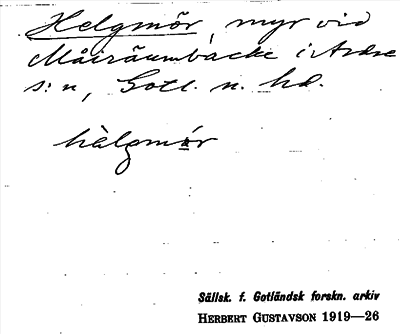 Helgmör, myr vid
Måiräumbacke i Ardre
s:n, Gotl. n. hd.
hälgmór
Sällsk. f. Gotländsk forskn. arkiv
HERBERT GUSTAVSON 1919—26